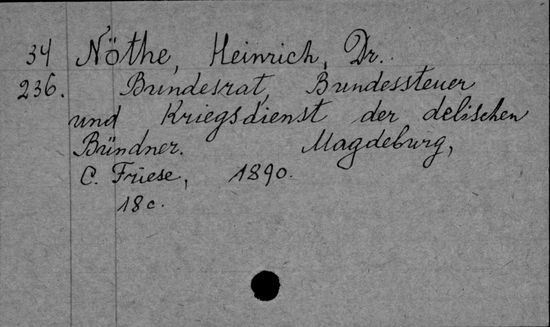 34 Nöthe, Heinrich, Dr.
236. Bundesrat, Bundessteuer
und Kriegsdienst der delischen
Bündner. Magdeburg,
C. Friese, 1890.
18c.